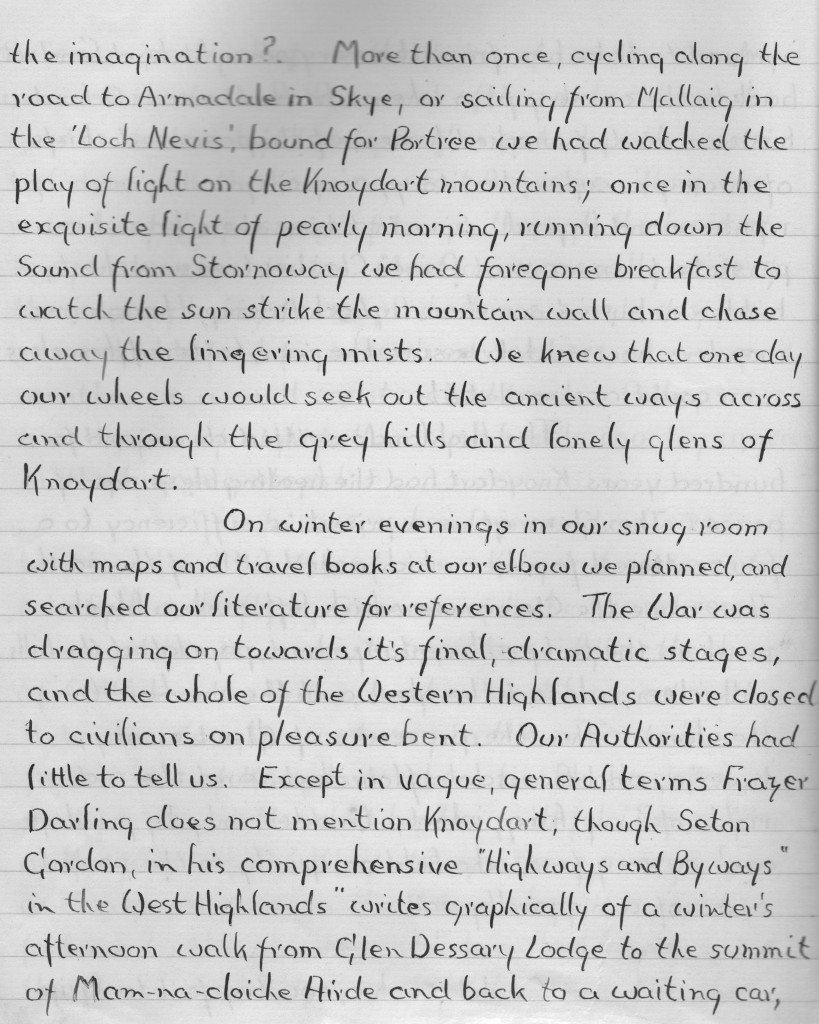 the imagination?. More than once, cycling along the
road to Armadale in Skye, or sailing from Mallaig in
the 'Loch Nevis', bound for Portree we had watched the
play of light on the Knoydart mountains; once in the
exquisite light of pearly morning, running down the
Sound from Stornoway we had foregone breakfast to
watch the sun strike the mountain wall and chase
away the lingering mists. We knew that one day
our wheels would seek out the ancient ways across
and through the grey hills and lonely glens of
Knoydart.
On winter evenings in our snug room
with maps and travel books at our elbow we planned, and
searched our literature for references. The War was
dragging on towards it's final, dramatic stages,
and the whole of the Western Highlands were closed
to civilians on pleasure bent. Our Authorities had
little to tell us. Except in vague, general terms Frazer
Darling does not mention Knoydart, though Seton
Gordon, in his comprehensive "Highways and Byways"
in the West Highlands" writes graphically of a winter's
afternoon walk from Glen Dessary Lodge to the summit
of Mam-na-cloiche Airde and back to a waiting car,